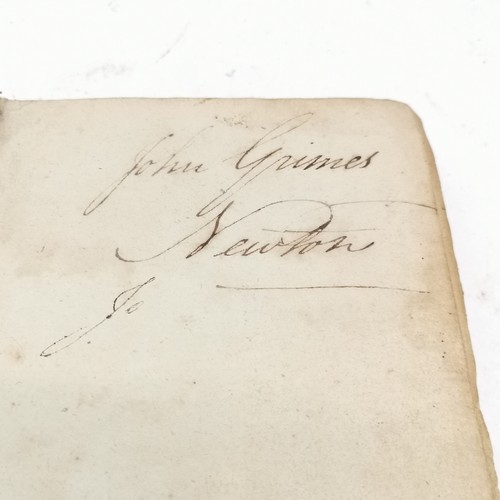 John Grimes
Newton
Jo